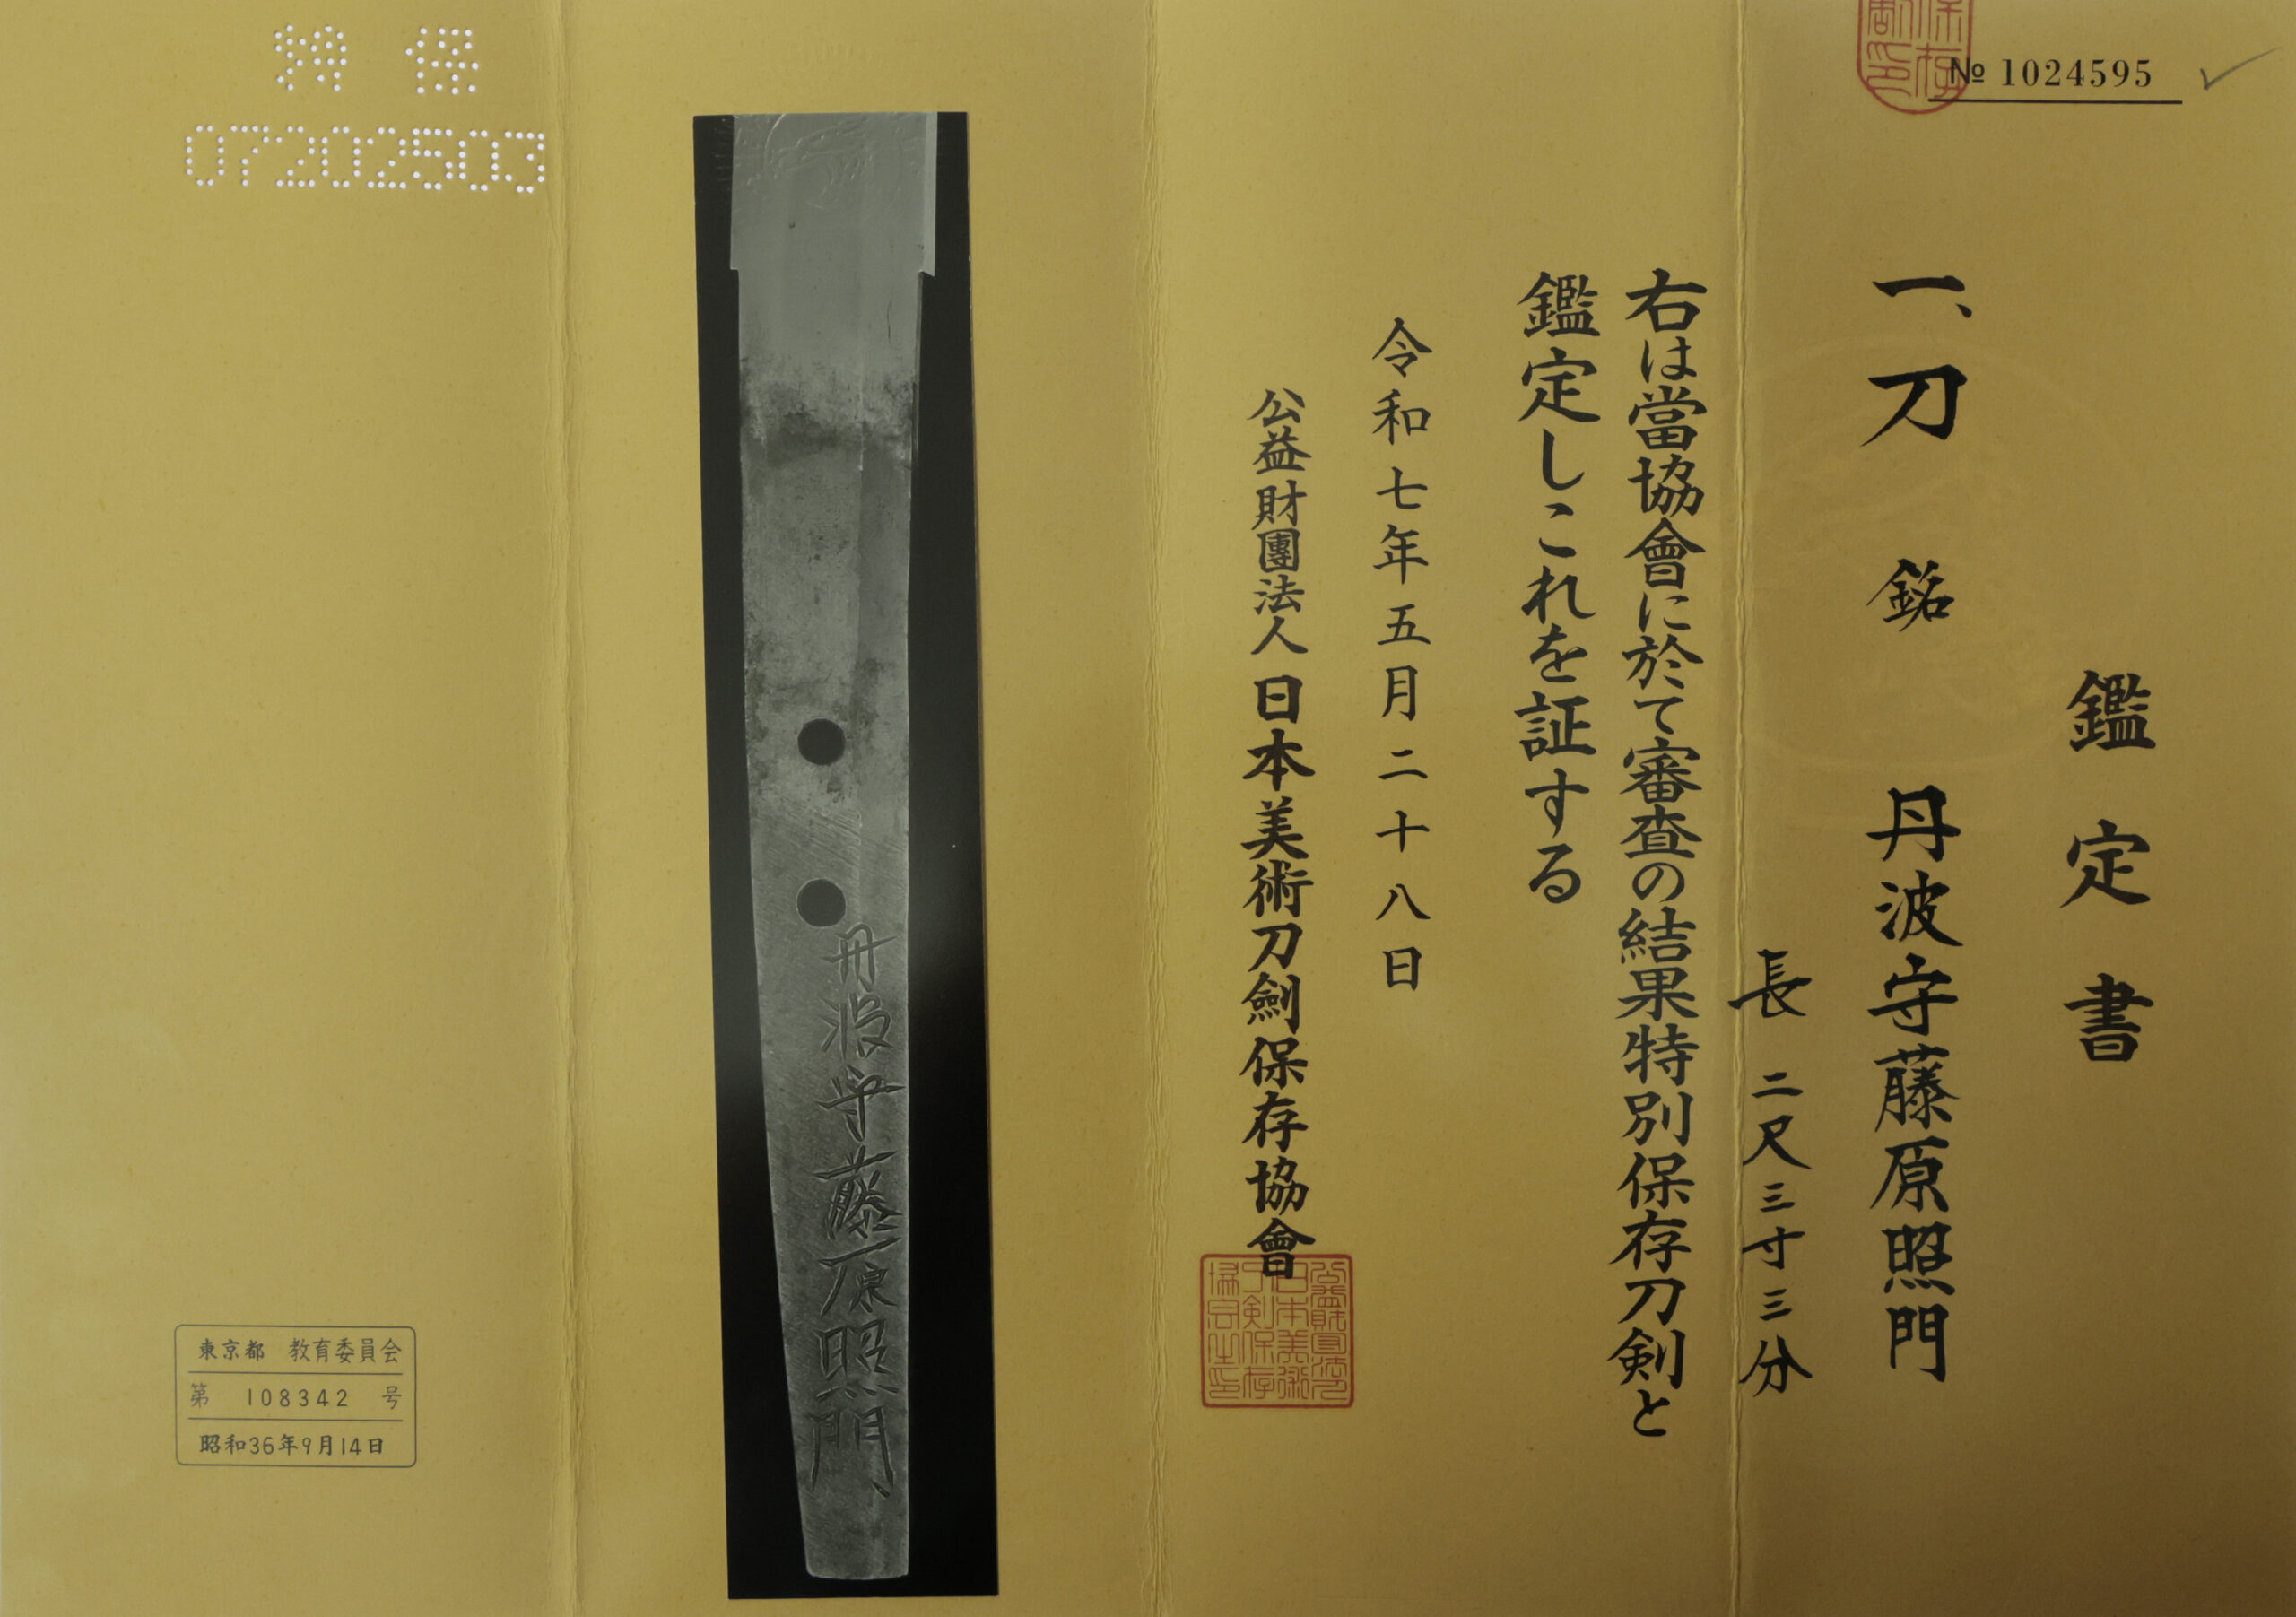 № 1024595
鑑定書
一、刀 銘 丹波守藤原照門
長 二尺三寸三分
右は當協會に於て審査の結果特別保存刀剣と
鑑定しこれを証する
令和七年五月二十八日
公益財團法人 日本美術刀劍保存協會
丹波守藤原照門
特保
07202503
東京都 教育委員会
第 108342 号
昭和36年9月14日